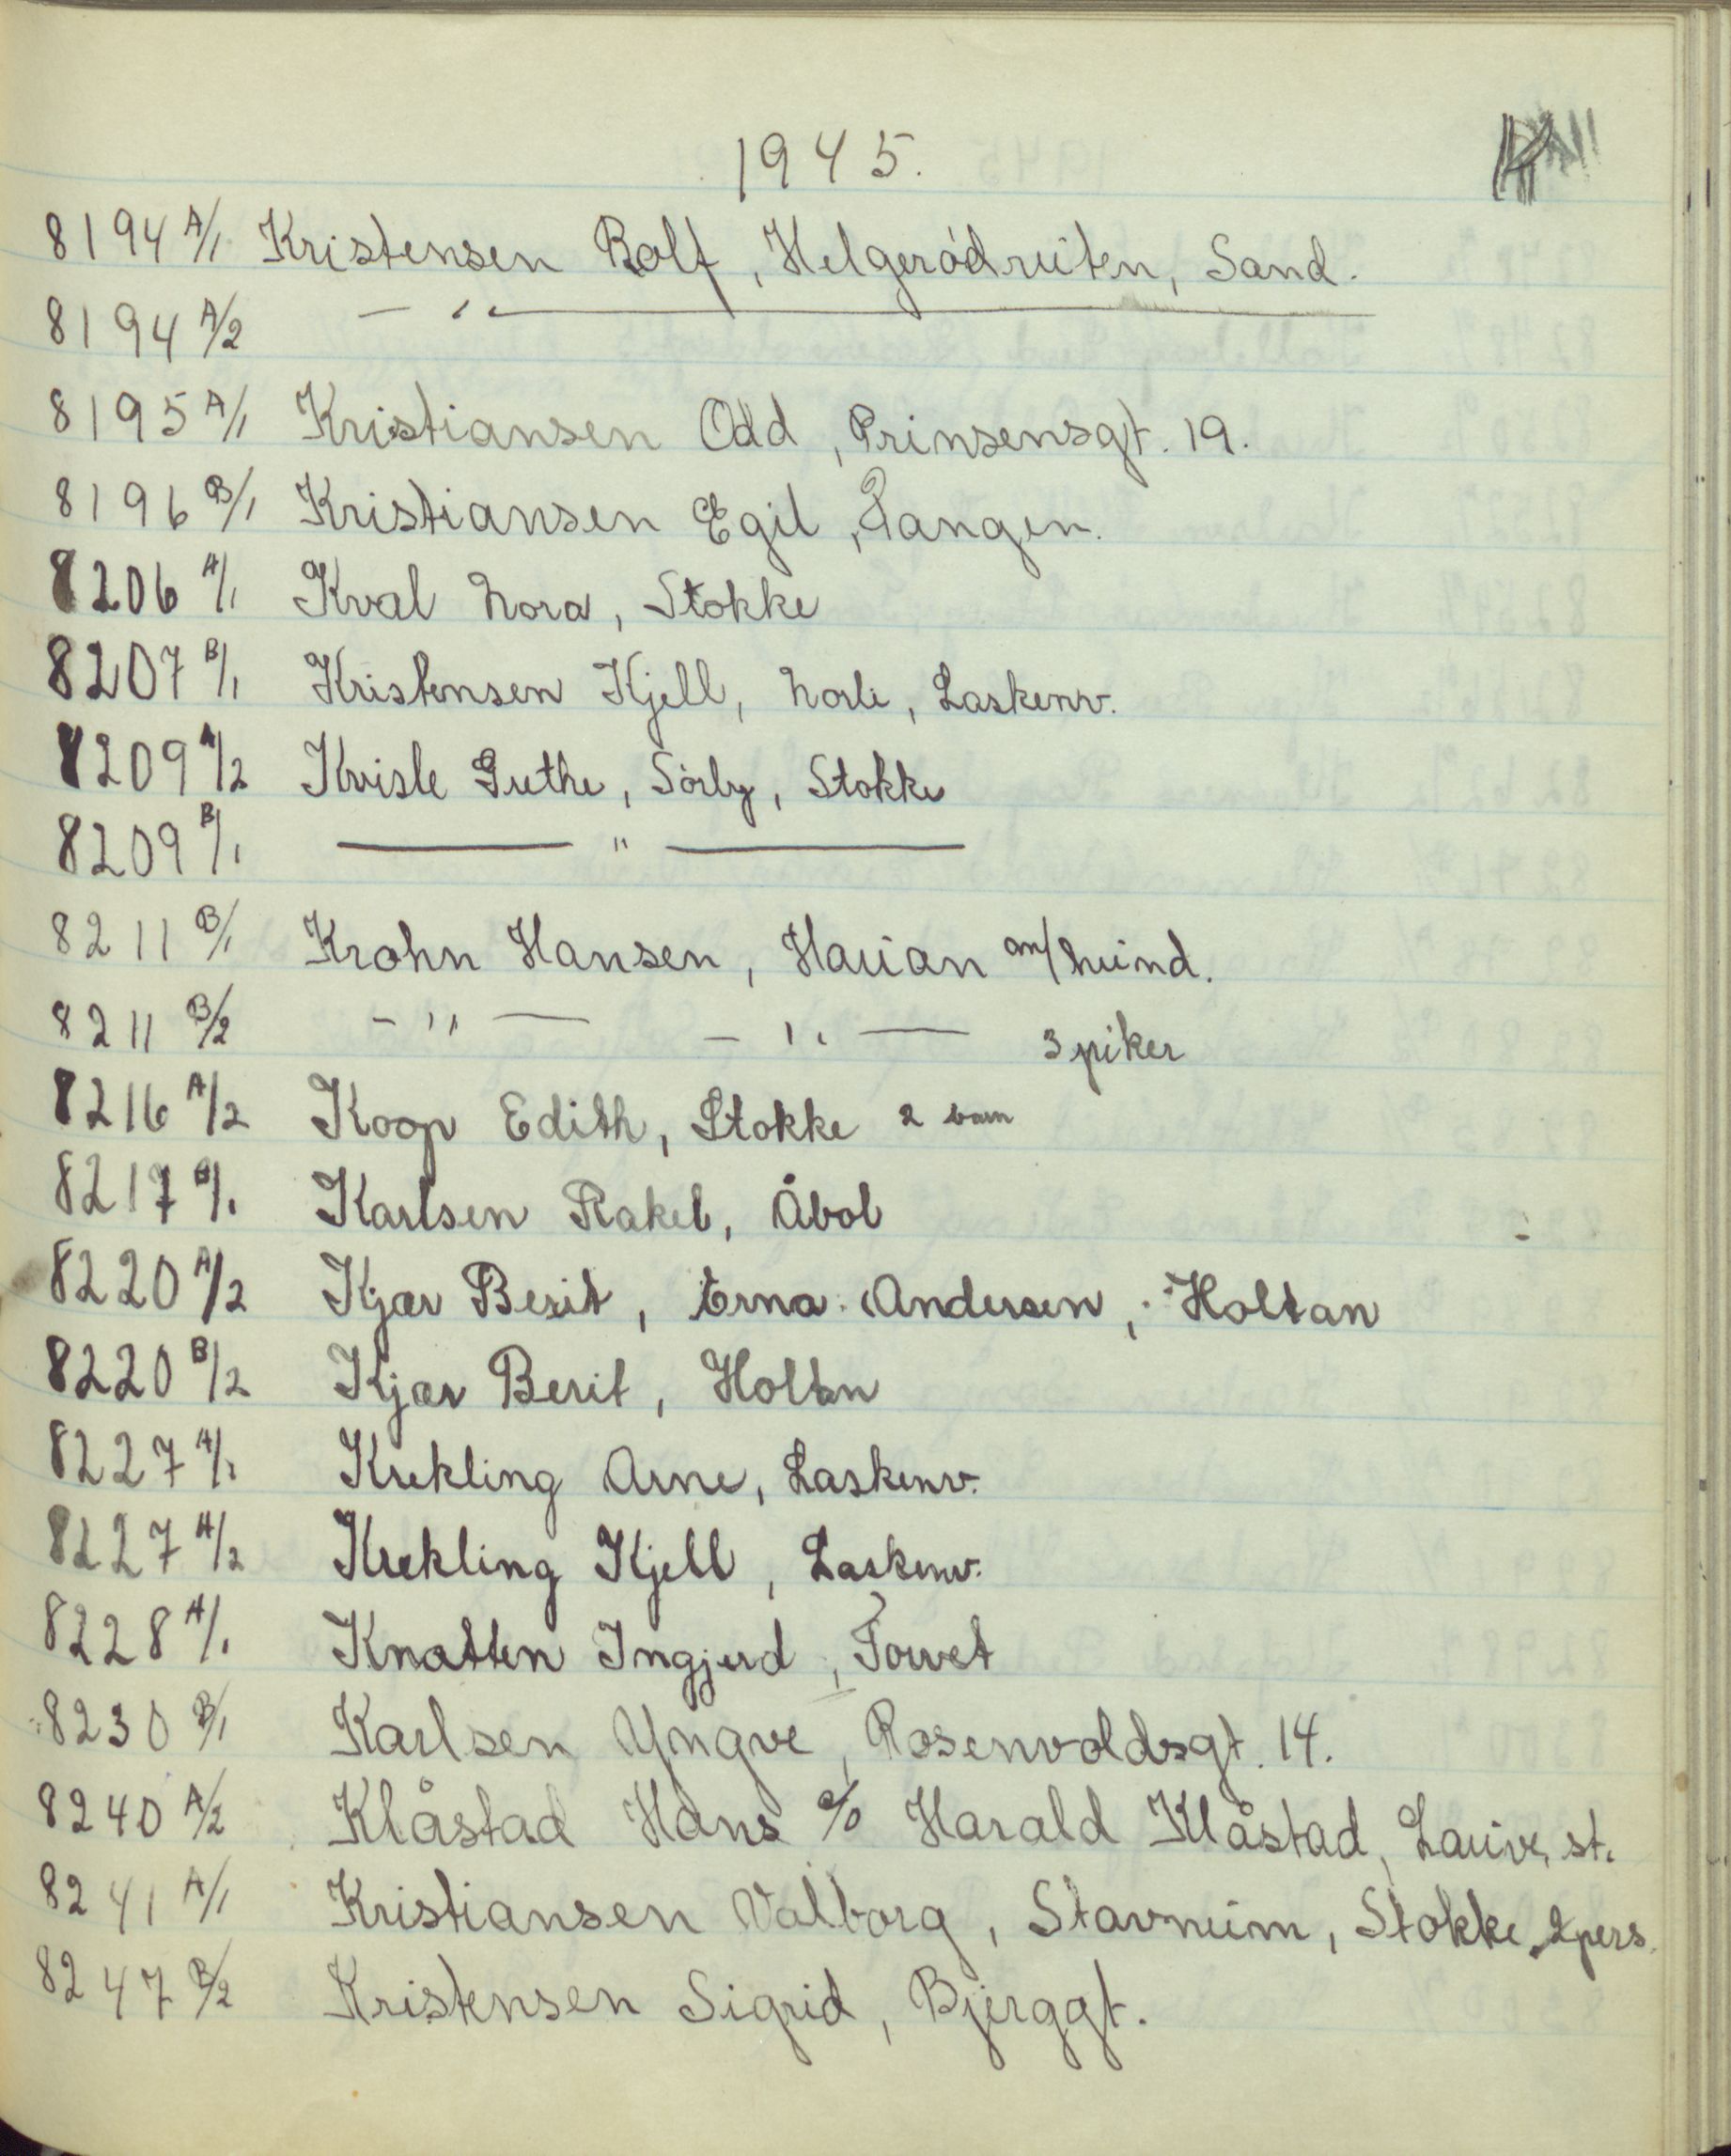 1945.
8194 A/1 Kristensen Rolf, Helgerødruten, Sand.
8194 A/2 — " —
8195 A/1 Kristiansen Odd, Prinsensgt. 19.
8196 B/1 Kristiansen Egil, Tangen.
8206 A/1 Kval Nora, Stokke
8207 B/1 Kristensen Kjell, Norli, Laskenv.
8209 A/2 Kvisle Grethe, Sörby, Stokke
8209 B/1 — " —
8211 B/1 Krohn Hansen, Haüan m/kvind.
8211 B/2 — " — — " — 3 piker
8216 A/2 Koop Edith, Stokke 2 barn
8217 B/1 Karlsen Rakel, Åbol
8220 A/2 Kjær Berit, Erna Andersen, Holtan
8220 B/2 Kjær Berit, Holtan
8227 A/1 Krekling Arne, Laskenv.
8227 A/2 Krekling Kjell, Laskenv.
8228 A/1 Knatten Ingjerd, Torvet
8230 B/1 Karlsen Yngve, Rosenvoldsgt. 14.
8240 A/2 Klåstad Hans c/o Harald Klåstad, Lauv. st.
8241 A/1 Kristiansen Valborg, Stavnum, Stokke, 2 pers.
8247 B/2 Kristensen Sigrid, Bjerggt.